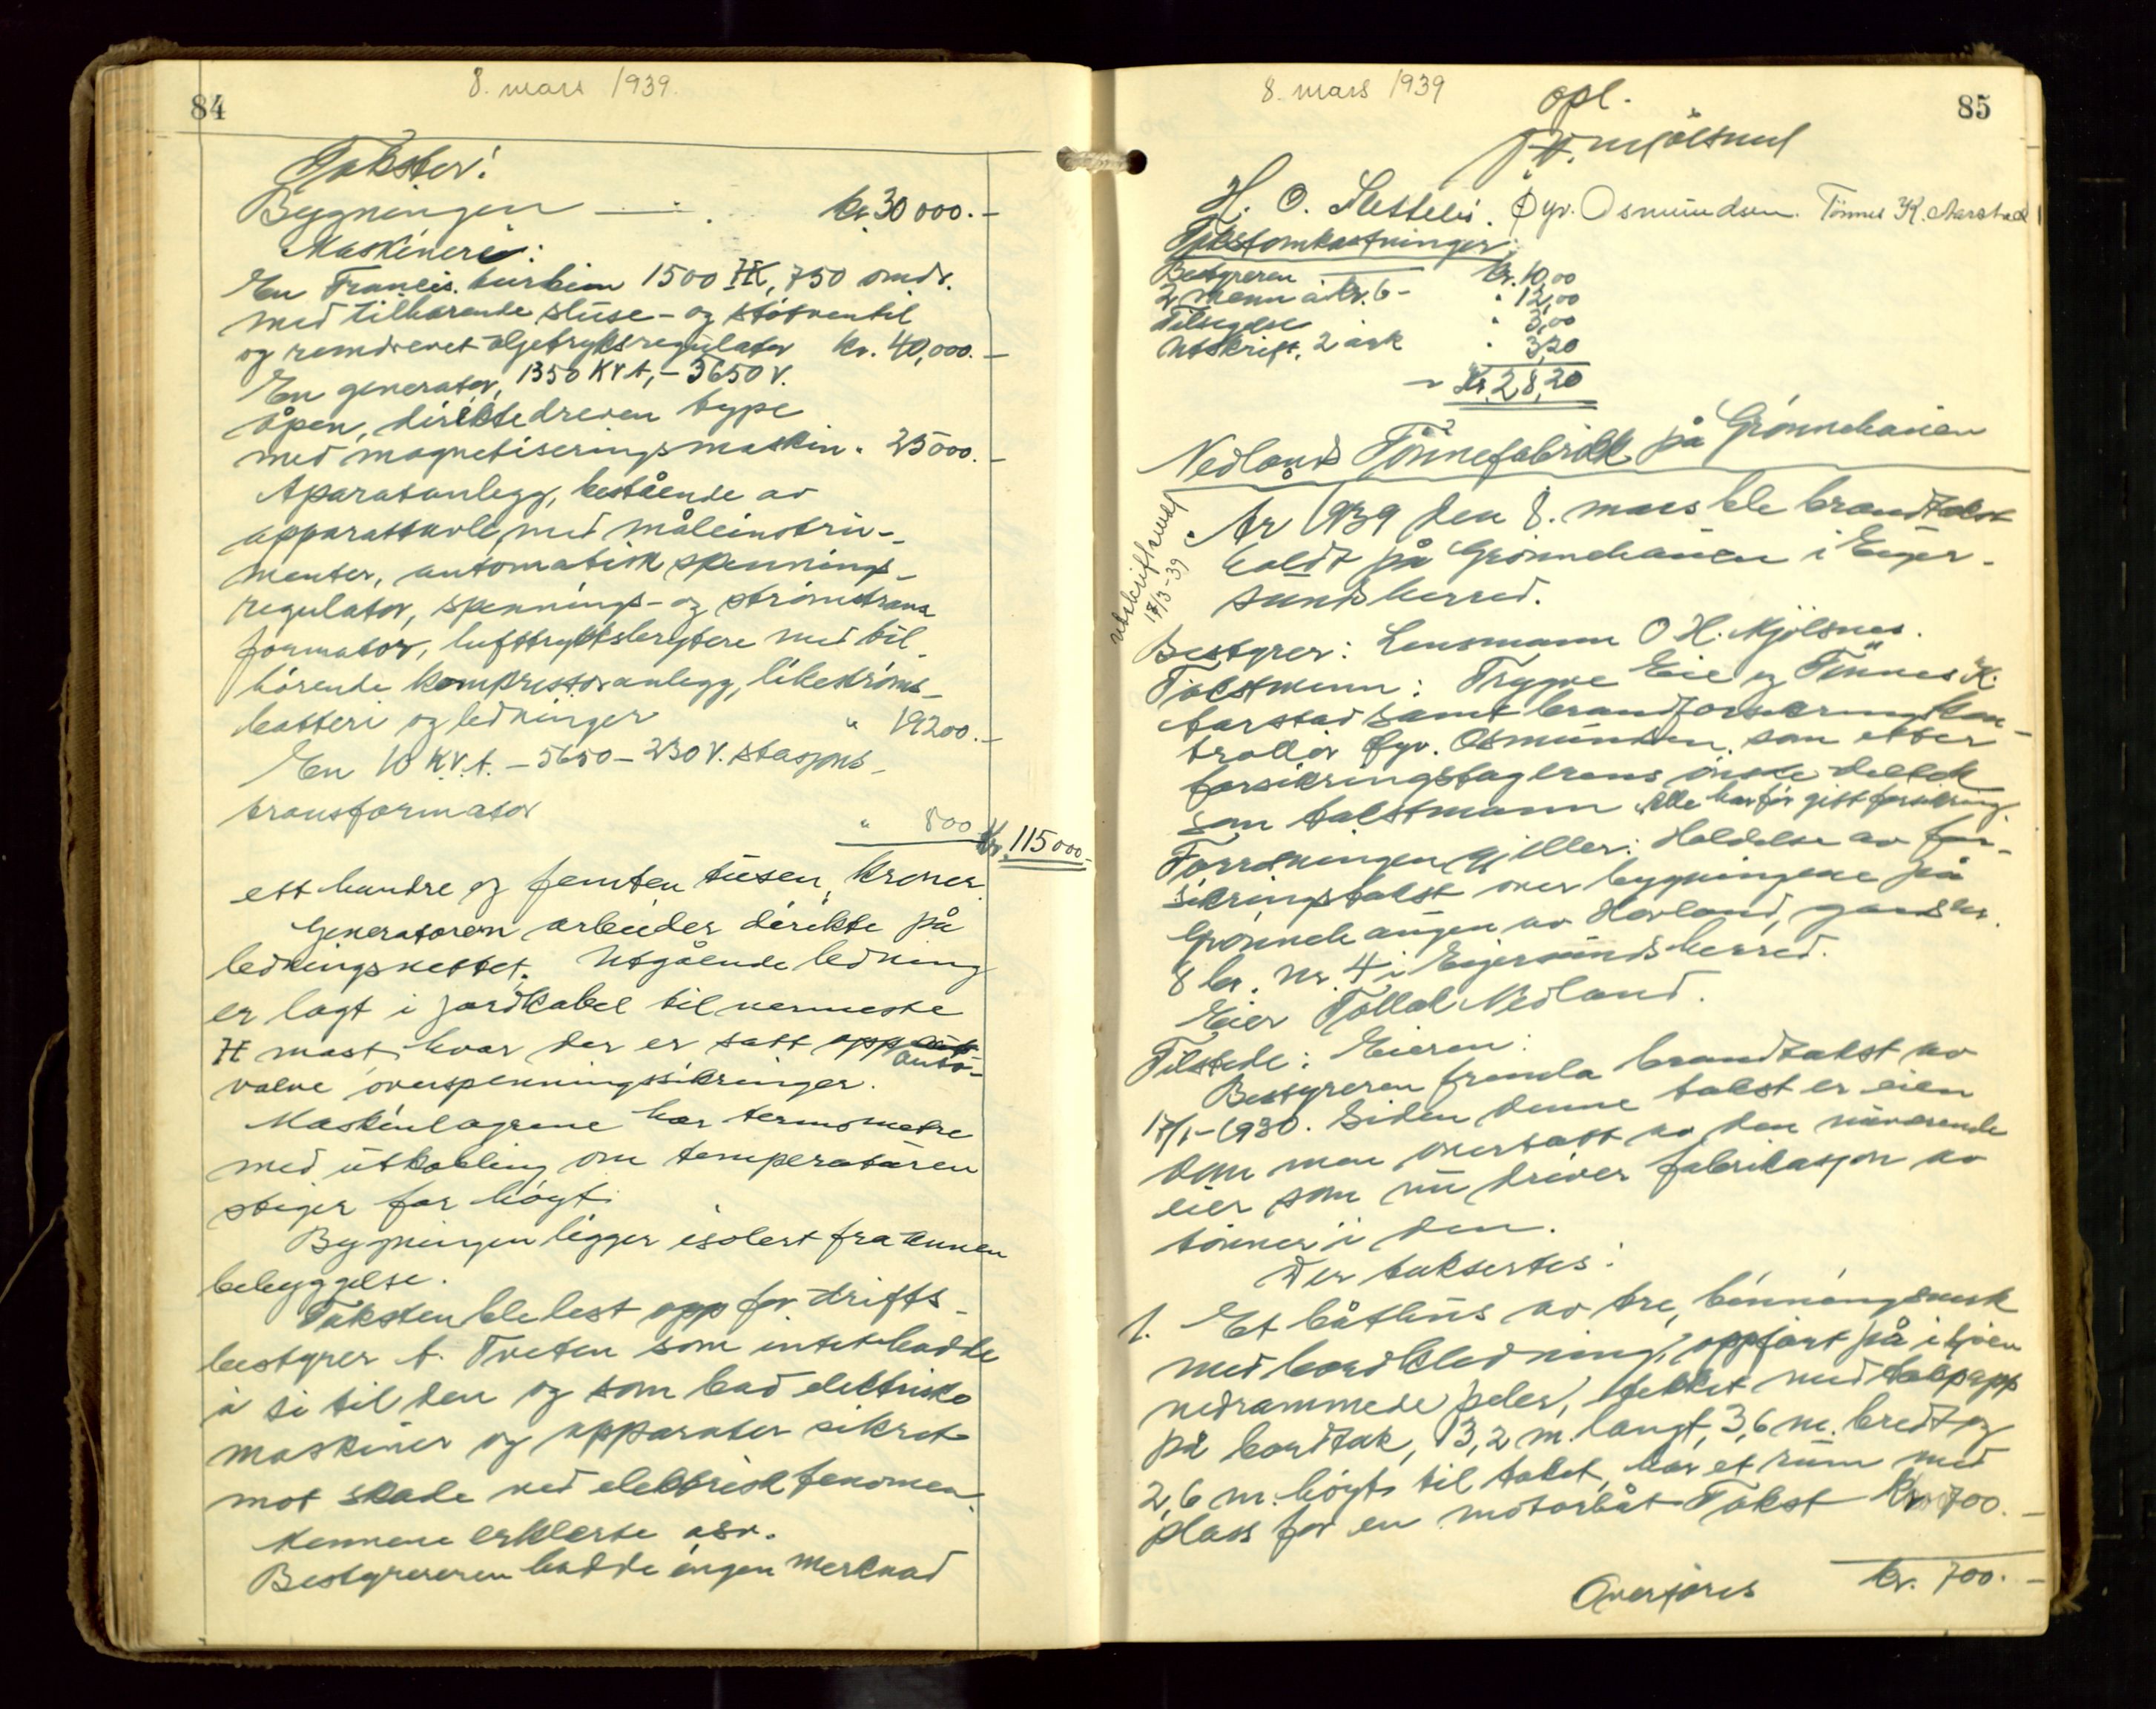 84
8. mars 1939.
Takster:
Bygningen — kr. 30 000.-
Maskineri:
En Francis turbin 1500 HK, 750 omdr.
med tilhørende sluse- og støtventil
og remdrevet oljetryksregulator kr. 40,000.-
En generator, 1350 KVA, - 5650 V.
åpen, direktedreven type
med magnetiseringsmaskin. 25000.-
Aparatanlegg, bestående av
apparattavle med måleinstru-
menter, automatisk spennings-
regulator, spennings- og strømtrans
formator, lufttryksbrytere med til-
hørende kompressoranlegg, likestrøms-
batteri og ledninger " 19200.-
En 10 KVA. - 5650 - 230 V. stasjons-
transformator
" 800 Kr. 115000.-
ett hundre og femten tusen kroner.
Generatoren arbeider direkte på
ledningsnettet. Utgående ledning
er lagt i jordkabel til nermeste
H mast, hvor der er satt opp auto-
valve overspenningssikringer.
Maskinlagrene har termometre
med utkobling om temperaturen
stiger for høgt.
Bygningen ligger isolert fra annen
bebyggelse.
Taksten ble lest opp for drifts-
bestyrer A. Tveten som intet hadde
å si til den og som bad elektriske
maskiner og apparater sikret
mot skade ved elektrisk fenomen.
Mennene erklærte osv.
Bestyreren hadde ingen merknad
85
8. mars 1939
opl.
O. H. Mjølsnes
H. O. Sletteli. Gyr. Osmundsen. Tønnes K. Aarstad
Takstomkostninger:
Bestyreren kr. 10,00
2 menn à kr. 6- " 12,00
Tilsigelse " 3,00
Utskrift, 2 ark " 3,20
Kr. 28,20
Nedlands Tønnefabrikk på Grønnehaugen
Utskrift
17/3-39
År 1939 den 8. mars ble brandtakst
holdt på Grønnehaugen i Eiger-
sunds herred.
Bestyrer: Lensmann O. H. Mjölsnes.
Takstmenn: Trygve Eie og Tønnes K.
Aarstad samt brandforsikringskon-
trollør Gyr. Osmundsen, som etter
forsikringstagerens ønske deltok
som takstmann. Alle har før gitt forsikring.
Forretningen gjeller: Holdelse av for-
sikringstakst over bygningene på
Grønnehaugen av Hovland, gards nr.
8 br. nr. 4 i Eigersunds herred.
Eier Tollak Nedland.
Tilstede: Eieren:
Bestyreren fremla brandtakst av
17/1-1930. Siden denne takst er eien
dommen overtatt av den nuværende
eier som nu driver fabrikasjon av
tønner i den.
Der taksertes:
1. Et båthus av tre, binningsverk
med bordkledning, oppført på i sjøen
nedrammede peler, tekket med takpapp
på bordtak, 13,2 m. langt, 3,6 m. bredt og
2,6 m. høgt til taket, har et rum med
plass for en motorbåt. Takst Kr. 700.-
Overføres kr. 700.-